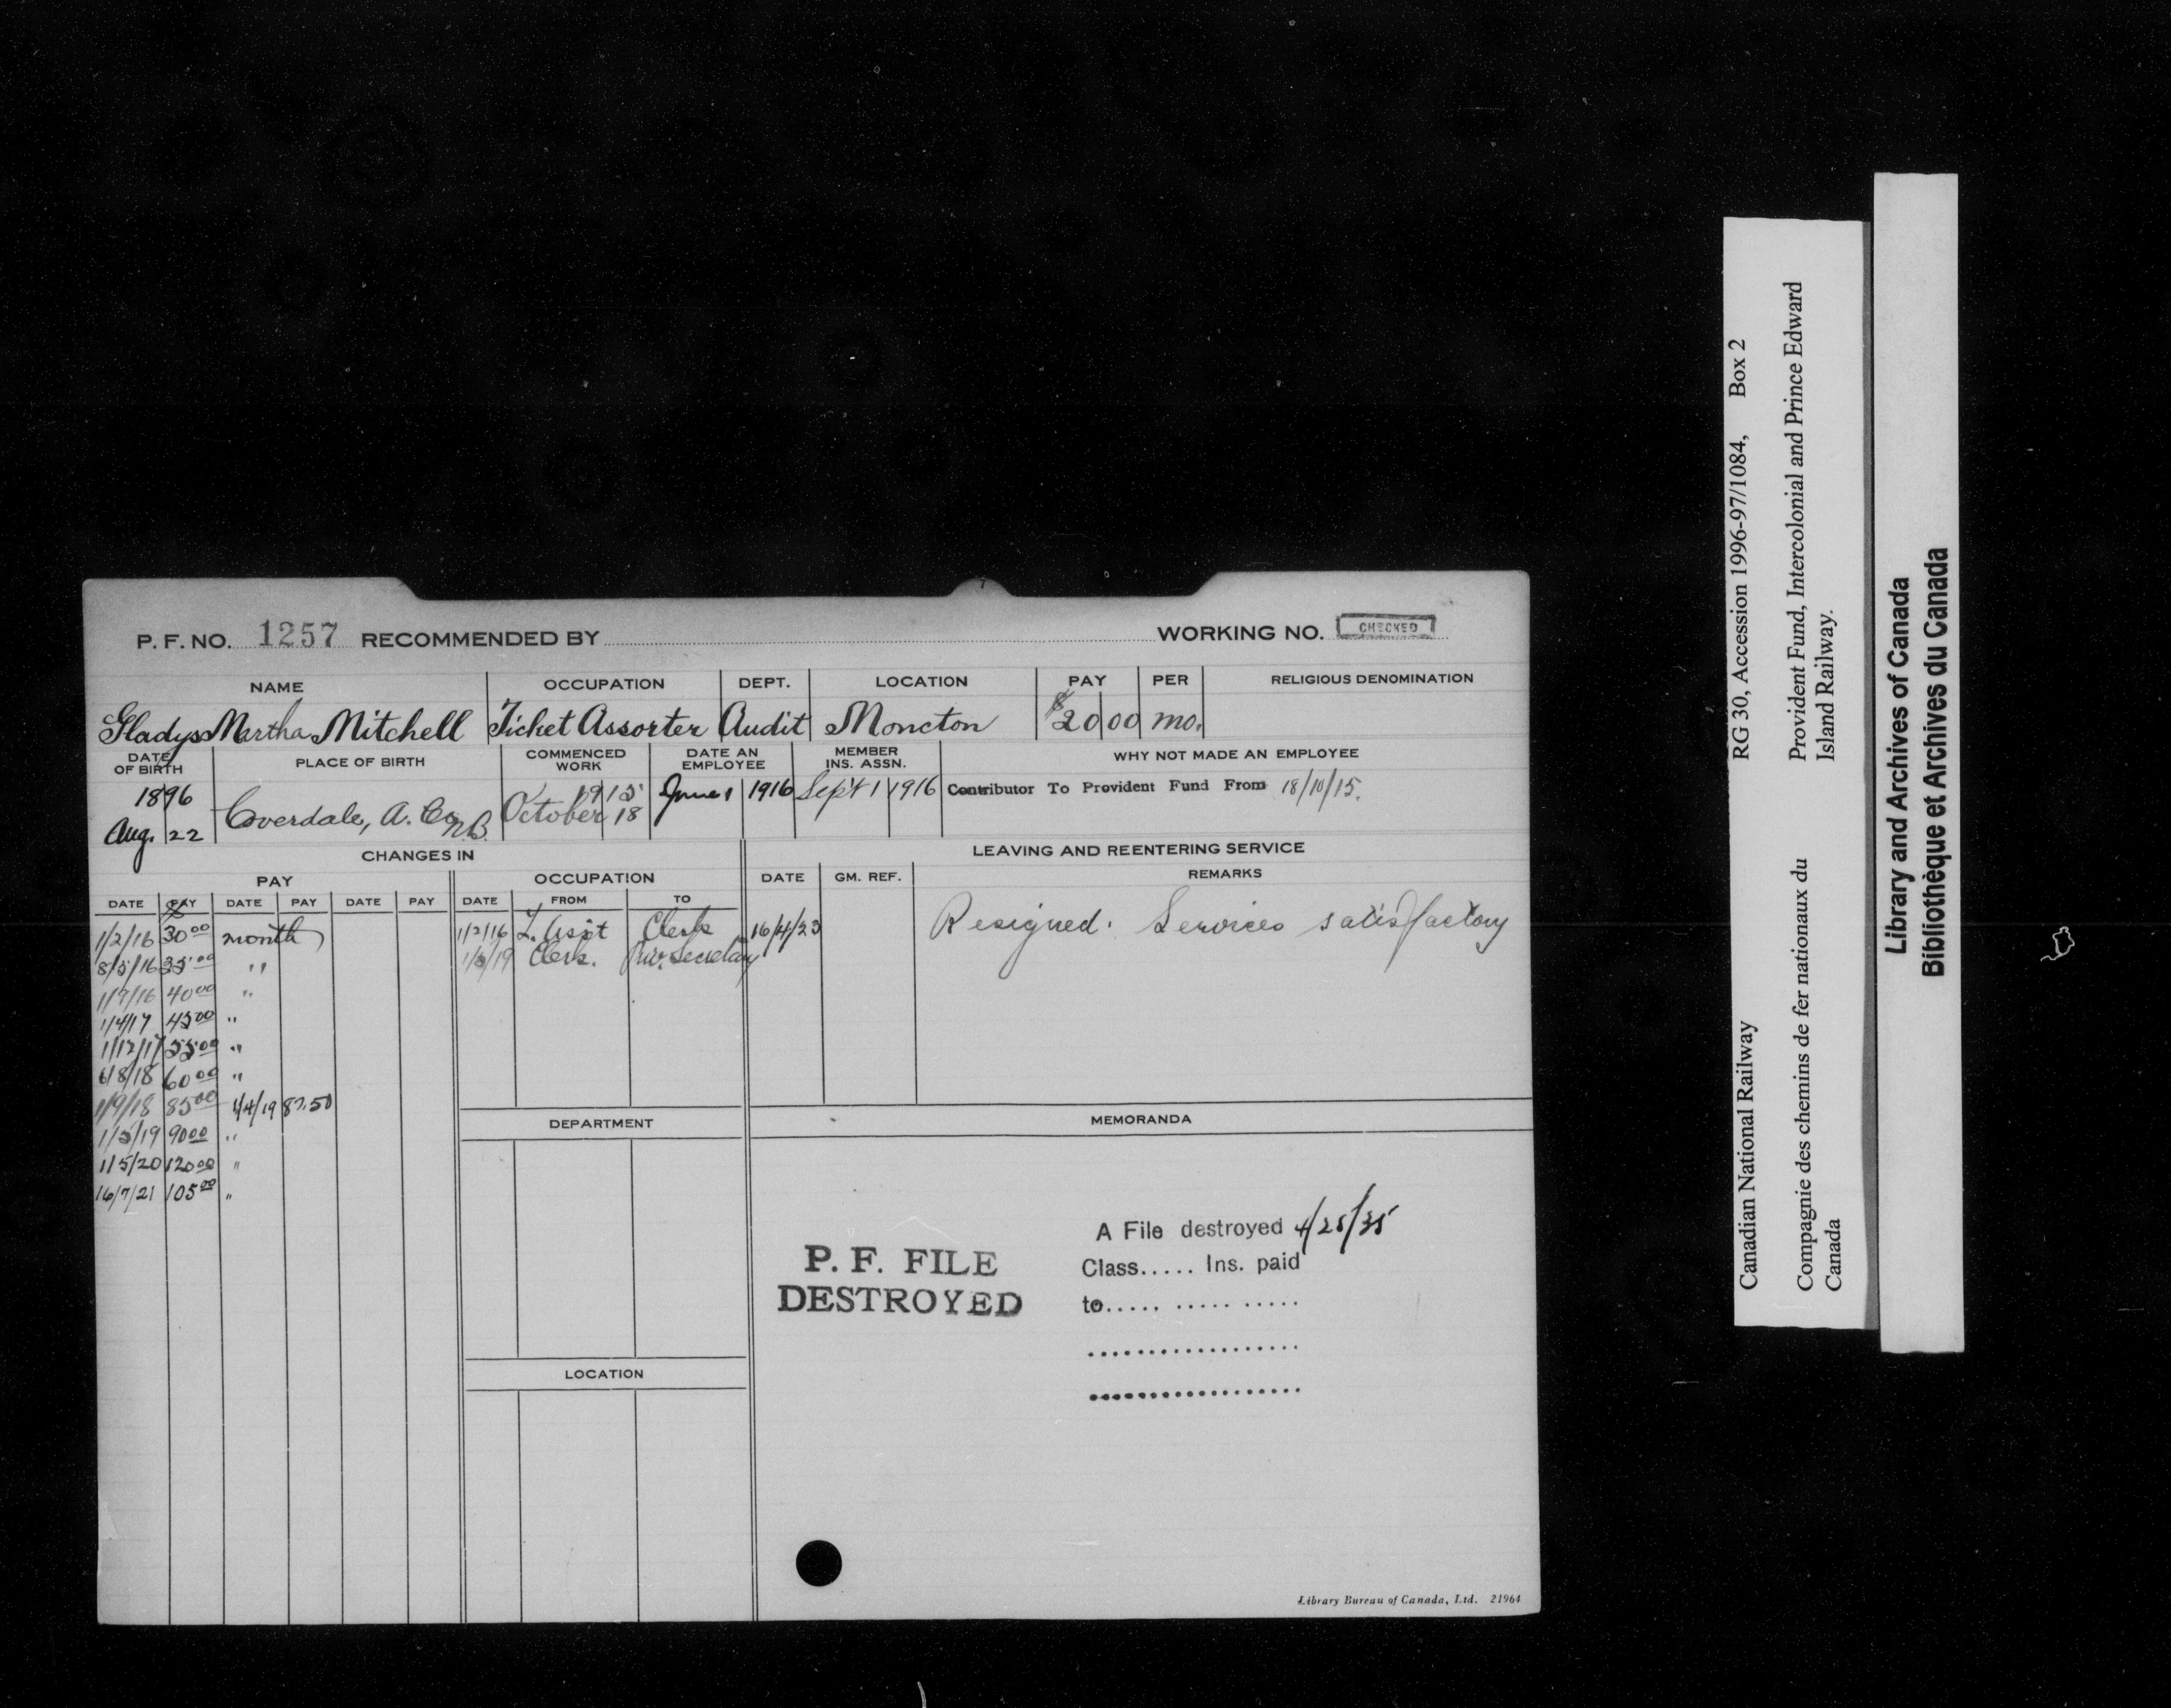 P. F. NO. 1257 RECOMMENDED BY WORKING NO. CHECKED
NAME OCCUPATION DEPT. LOCATION PAY PER RELIGIOUS DENOMINATION
Gladys Martha Mitchell Ticket Assorter Audit Moncton $20 00 mo.
DATE OF BIRTH PLACE OF BIRTH COMMENCED WORK DATE AN EMPLOYEE MEMBER INS. ASSN. WHY NOT MADE AN EMPLOYEE
1896 1915 June 1 1916 Sept 1 1916 Contributor To Provident Fund From 18/10/15.
Aug. 22 Coverdale, A. Co. N.B. October 18
CHANGES IN LEAVING AND REENTERING SERVICE
PAY OCCUPATION DATE GM. REF. REMARKS
DATE PAY DATE PAY DATE PAY DATE FROM TO
1/2/16 30 00 month 1/2/16 T. Assot Clerk 16/4/23 Resigned. Services satisfactory
8/5/16 35 00 " 1/5/19 Clerk. Priv. Secretary
1/7/16 40 00 "
1/4/17 45 00 "
1/12/17 55 00 "
6/8/18 60 00 "
1/9/18 85 00 1/4/19 87.50
1/5/19 90 00 "
1/5/20 120 00 "
16/7/21 105 00 "
DEPARTMENT MEMORANDA
LOCATION
P. F. FILE
DESTROYED
A File destroyed 4/25/35
Class..... Ins. paid
to..... ..... .....
Library Bureau of Canada, Ltd. 21964
Canadian National Railway RG 30, Accession 1996-97/1084, Box 2
Compagnie des chemins de fer nationaux du
Canada
Provident Fund, Intercolonial and Prince Edward
Island Railway.
Library and Archives of Canada
Bibliothèque et Archives du Canada